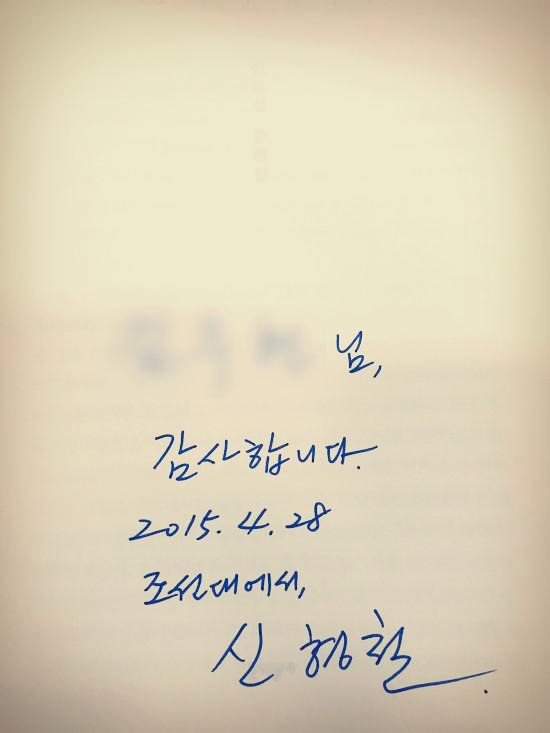 님,
감사합니다.
2015. 4. 28
조선대에서,
신형철.